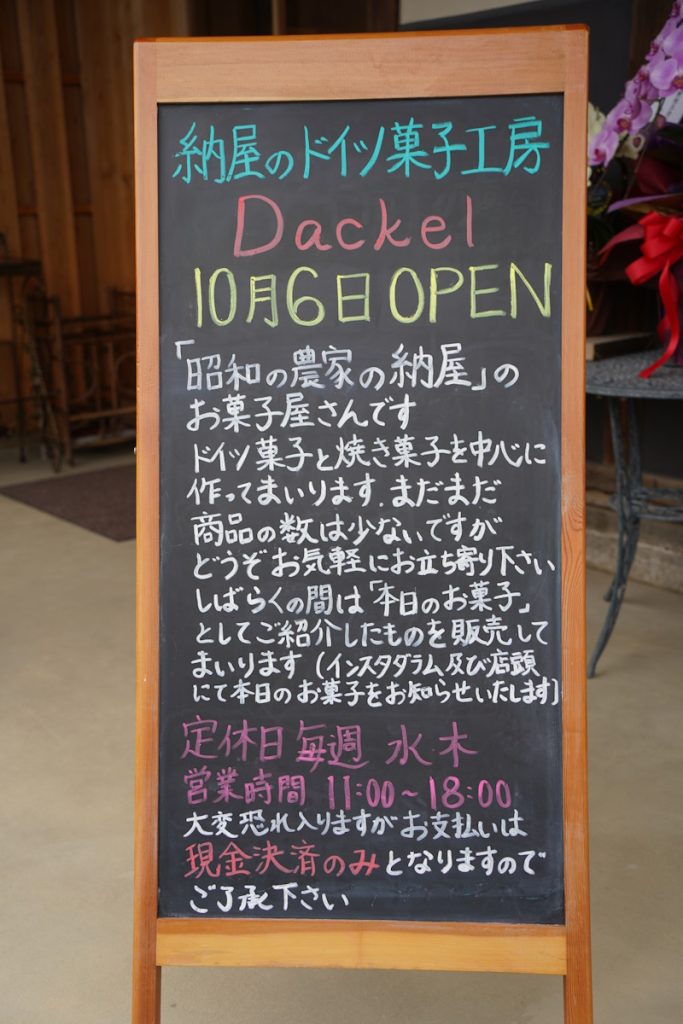 納屋のドイツ菓子工房
Dackel
10月6日OPEN
「昭和の農家の納屋」の
お菓子屋さんです
ドイツ菓子と焼き菓子を中心に
作ってまいります.まだまだ
商品の数は少ないですが
どうぞお気軽にお立ち寄り下さい
しばらくの間は「本日のお菓子」
としてご紹介したものを販売して
まいります(インスタグラム及び店頭
にて本日のお菓子をお知らせいたします)
定休日毎週 水木
営業時間 11:00～18:00
大変恐れ入りますがお支払いは
現金決済のみとなりますので
ご了承下さい